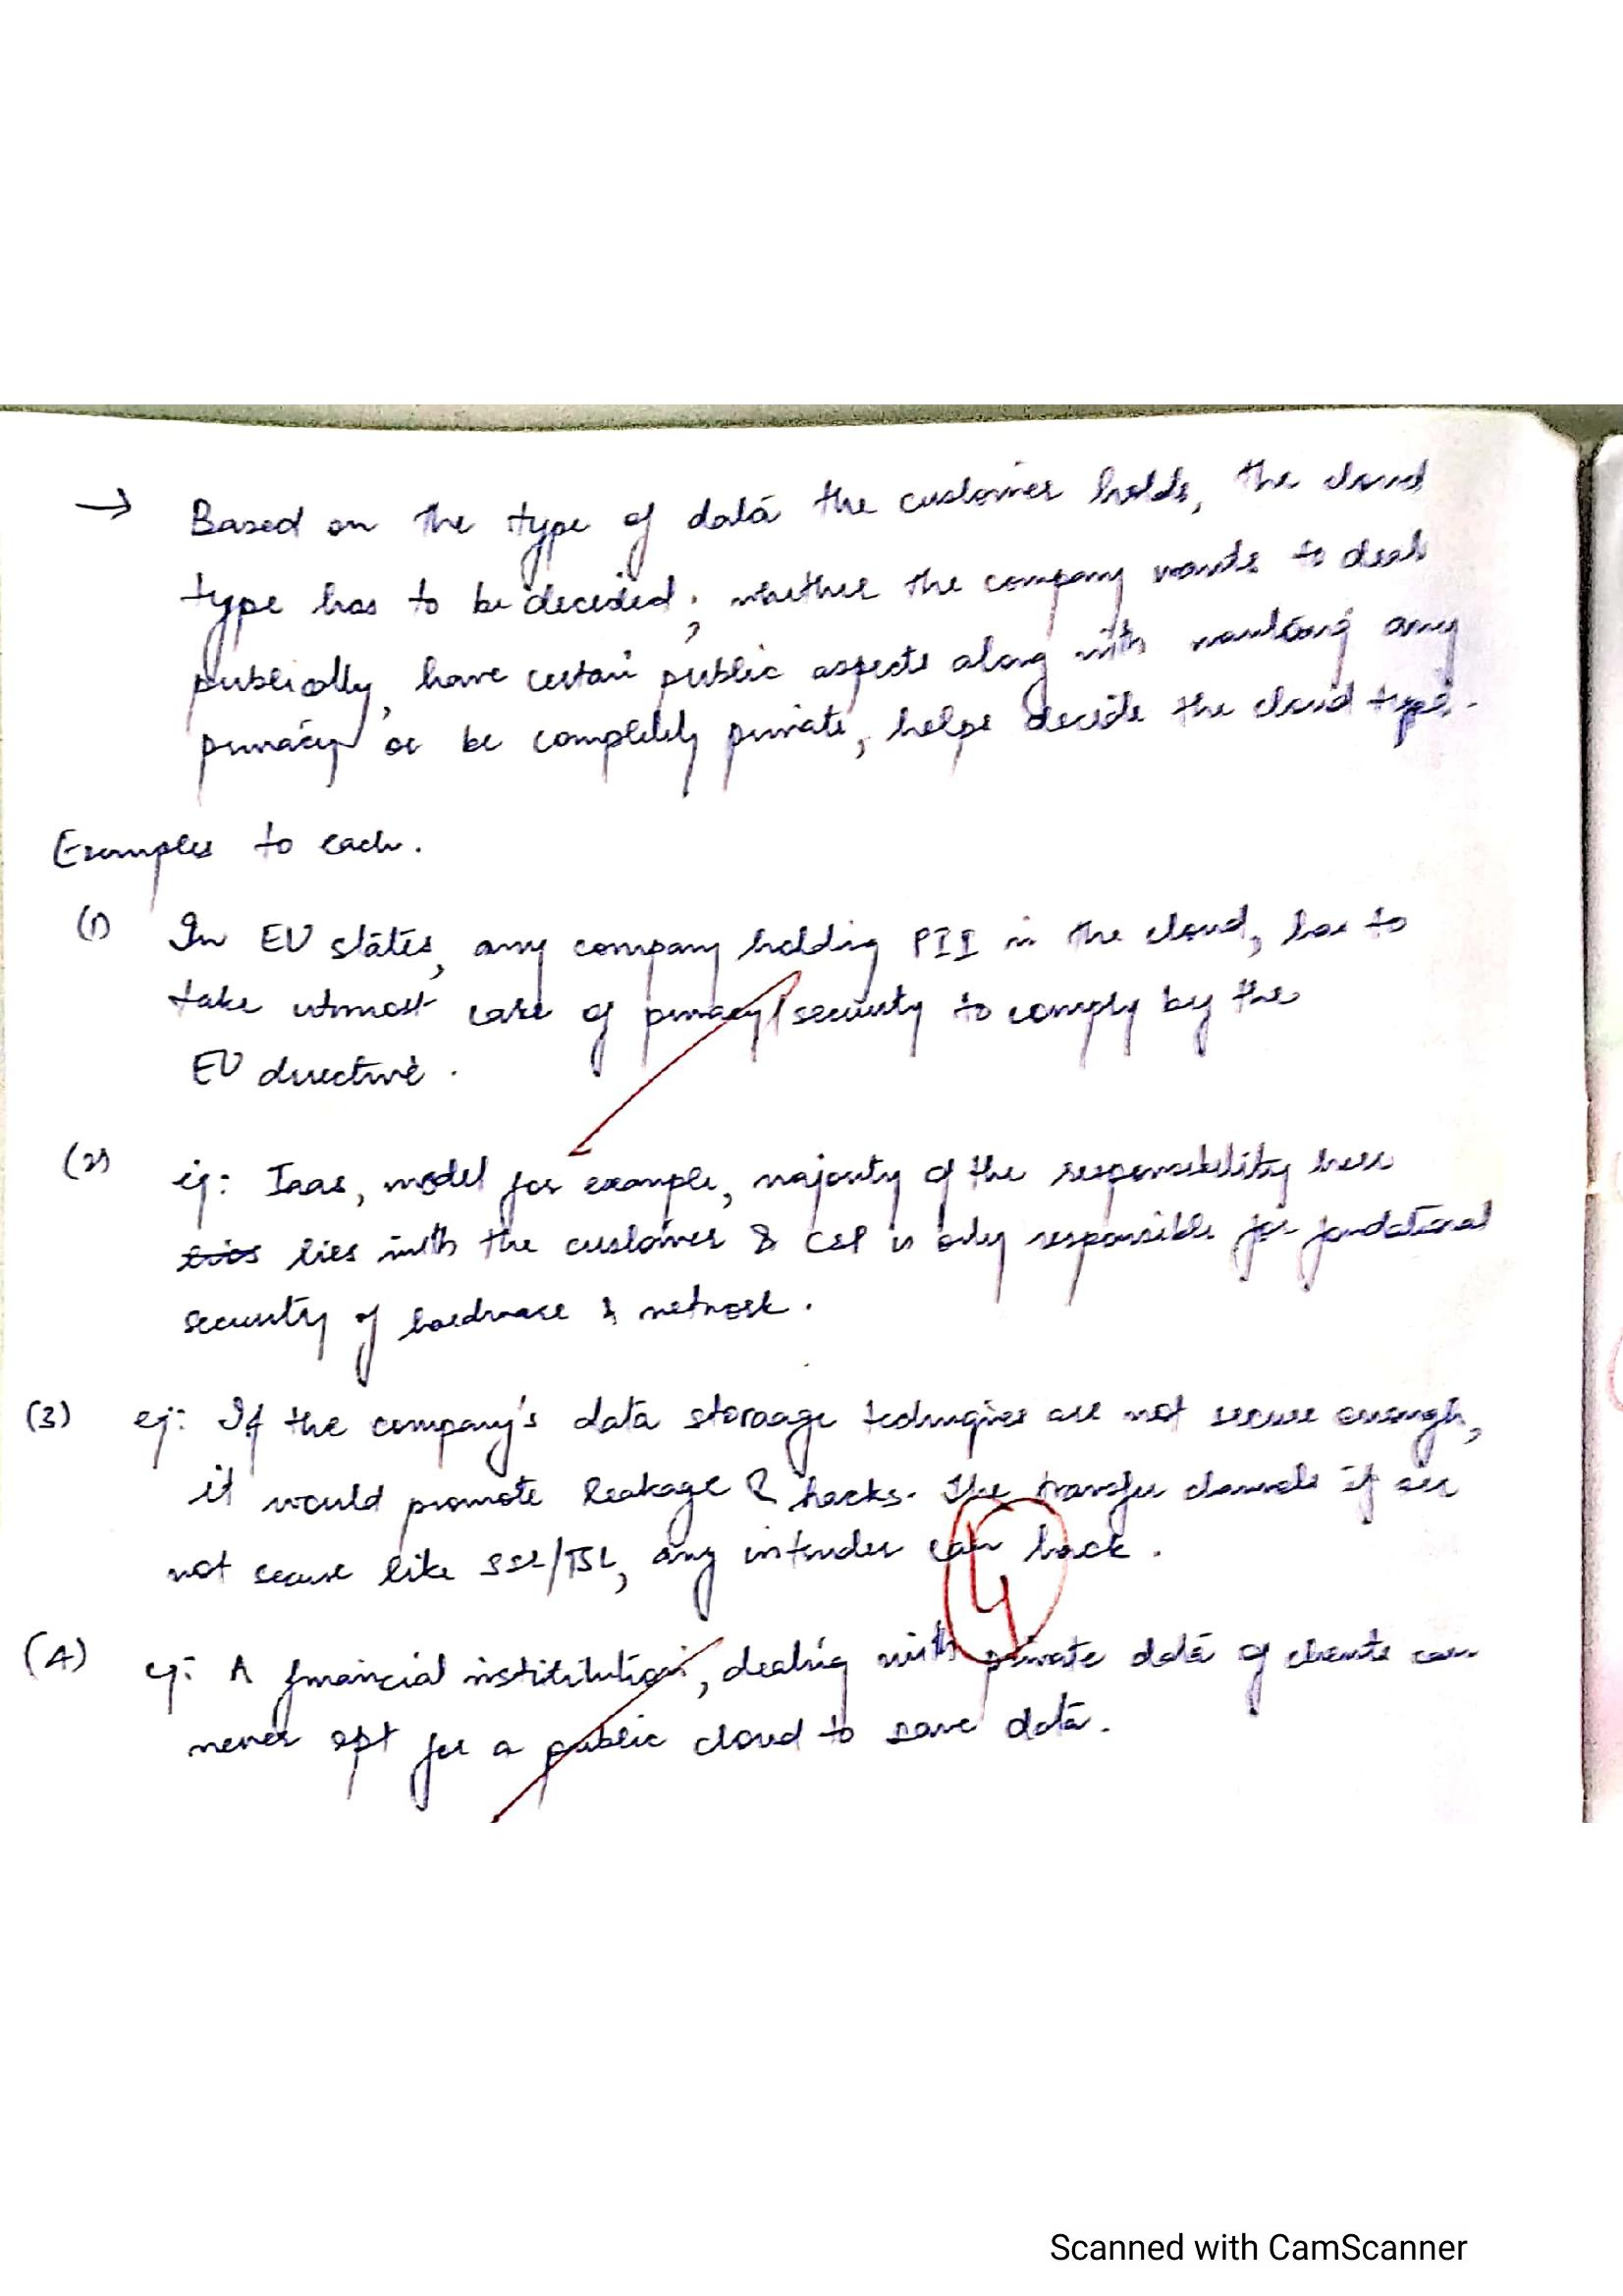 → Based on the type of data the customer holds, the cloud
type has to be decided; whether the company wants to deal
publically, have certain public aspects along with wanting any
privacy or be completely private, helps decide the cloud type.
Examples to each.
(1) In EU states, any company holding PII in the cloud, has to
take utmost care of privacy/security to comply by the
EU directive.
(2) eg: Iaas, model for example, majority of the responsibility here
lies with the customer & CSP is only responsible for
security of hardware & network.
(3) eg: If the company's data storaage techniques are not secure enough,
it would promote leakage & hacks. The transfer channels if are
not secure like SSL/TSL, any intruder can hack.
4
(4) eg: A financial institution, dealing with private data of clients can
never opt for a public cloud to save data.
Scanned with CamScanner